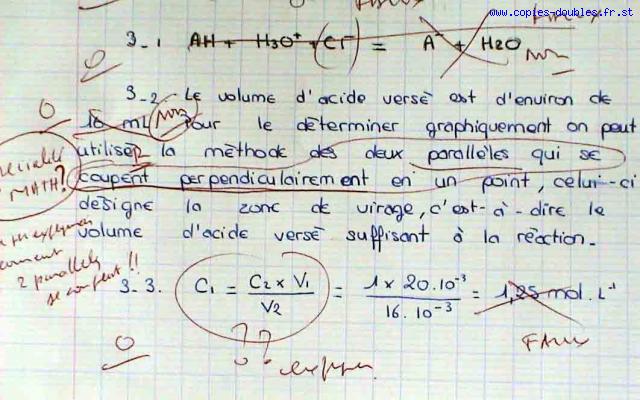 www.copies-doubles.fr.st
FAUX
3-1 AH + H3O+ + (Cl-) = A- + H2O
0
3-2 Le volume d'acide versé est d'environ de
0
16 mL. Pour le déterminer graphiquement on peut
utiliser la méthode des deux parallèles qui se
MATH?
coupent perpendiculairement en un point, celui-ci
désigne la zone de virage, c'est-à-dire le
volume d'acide versé suffisant à la réaction.
2 parallèles
se coupent!!
3-3. C1 = C2 x V1 / V2 = 1 x 20.10-3 / 16.10-3 = 1,25 mol.L-1
0
??
FAUX